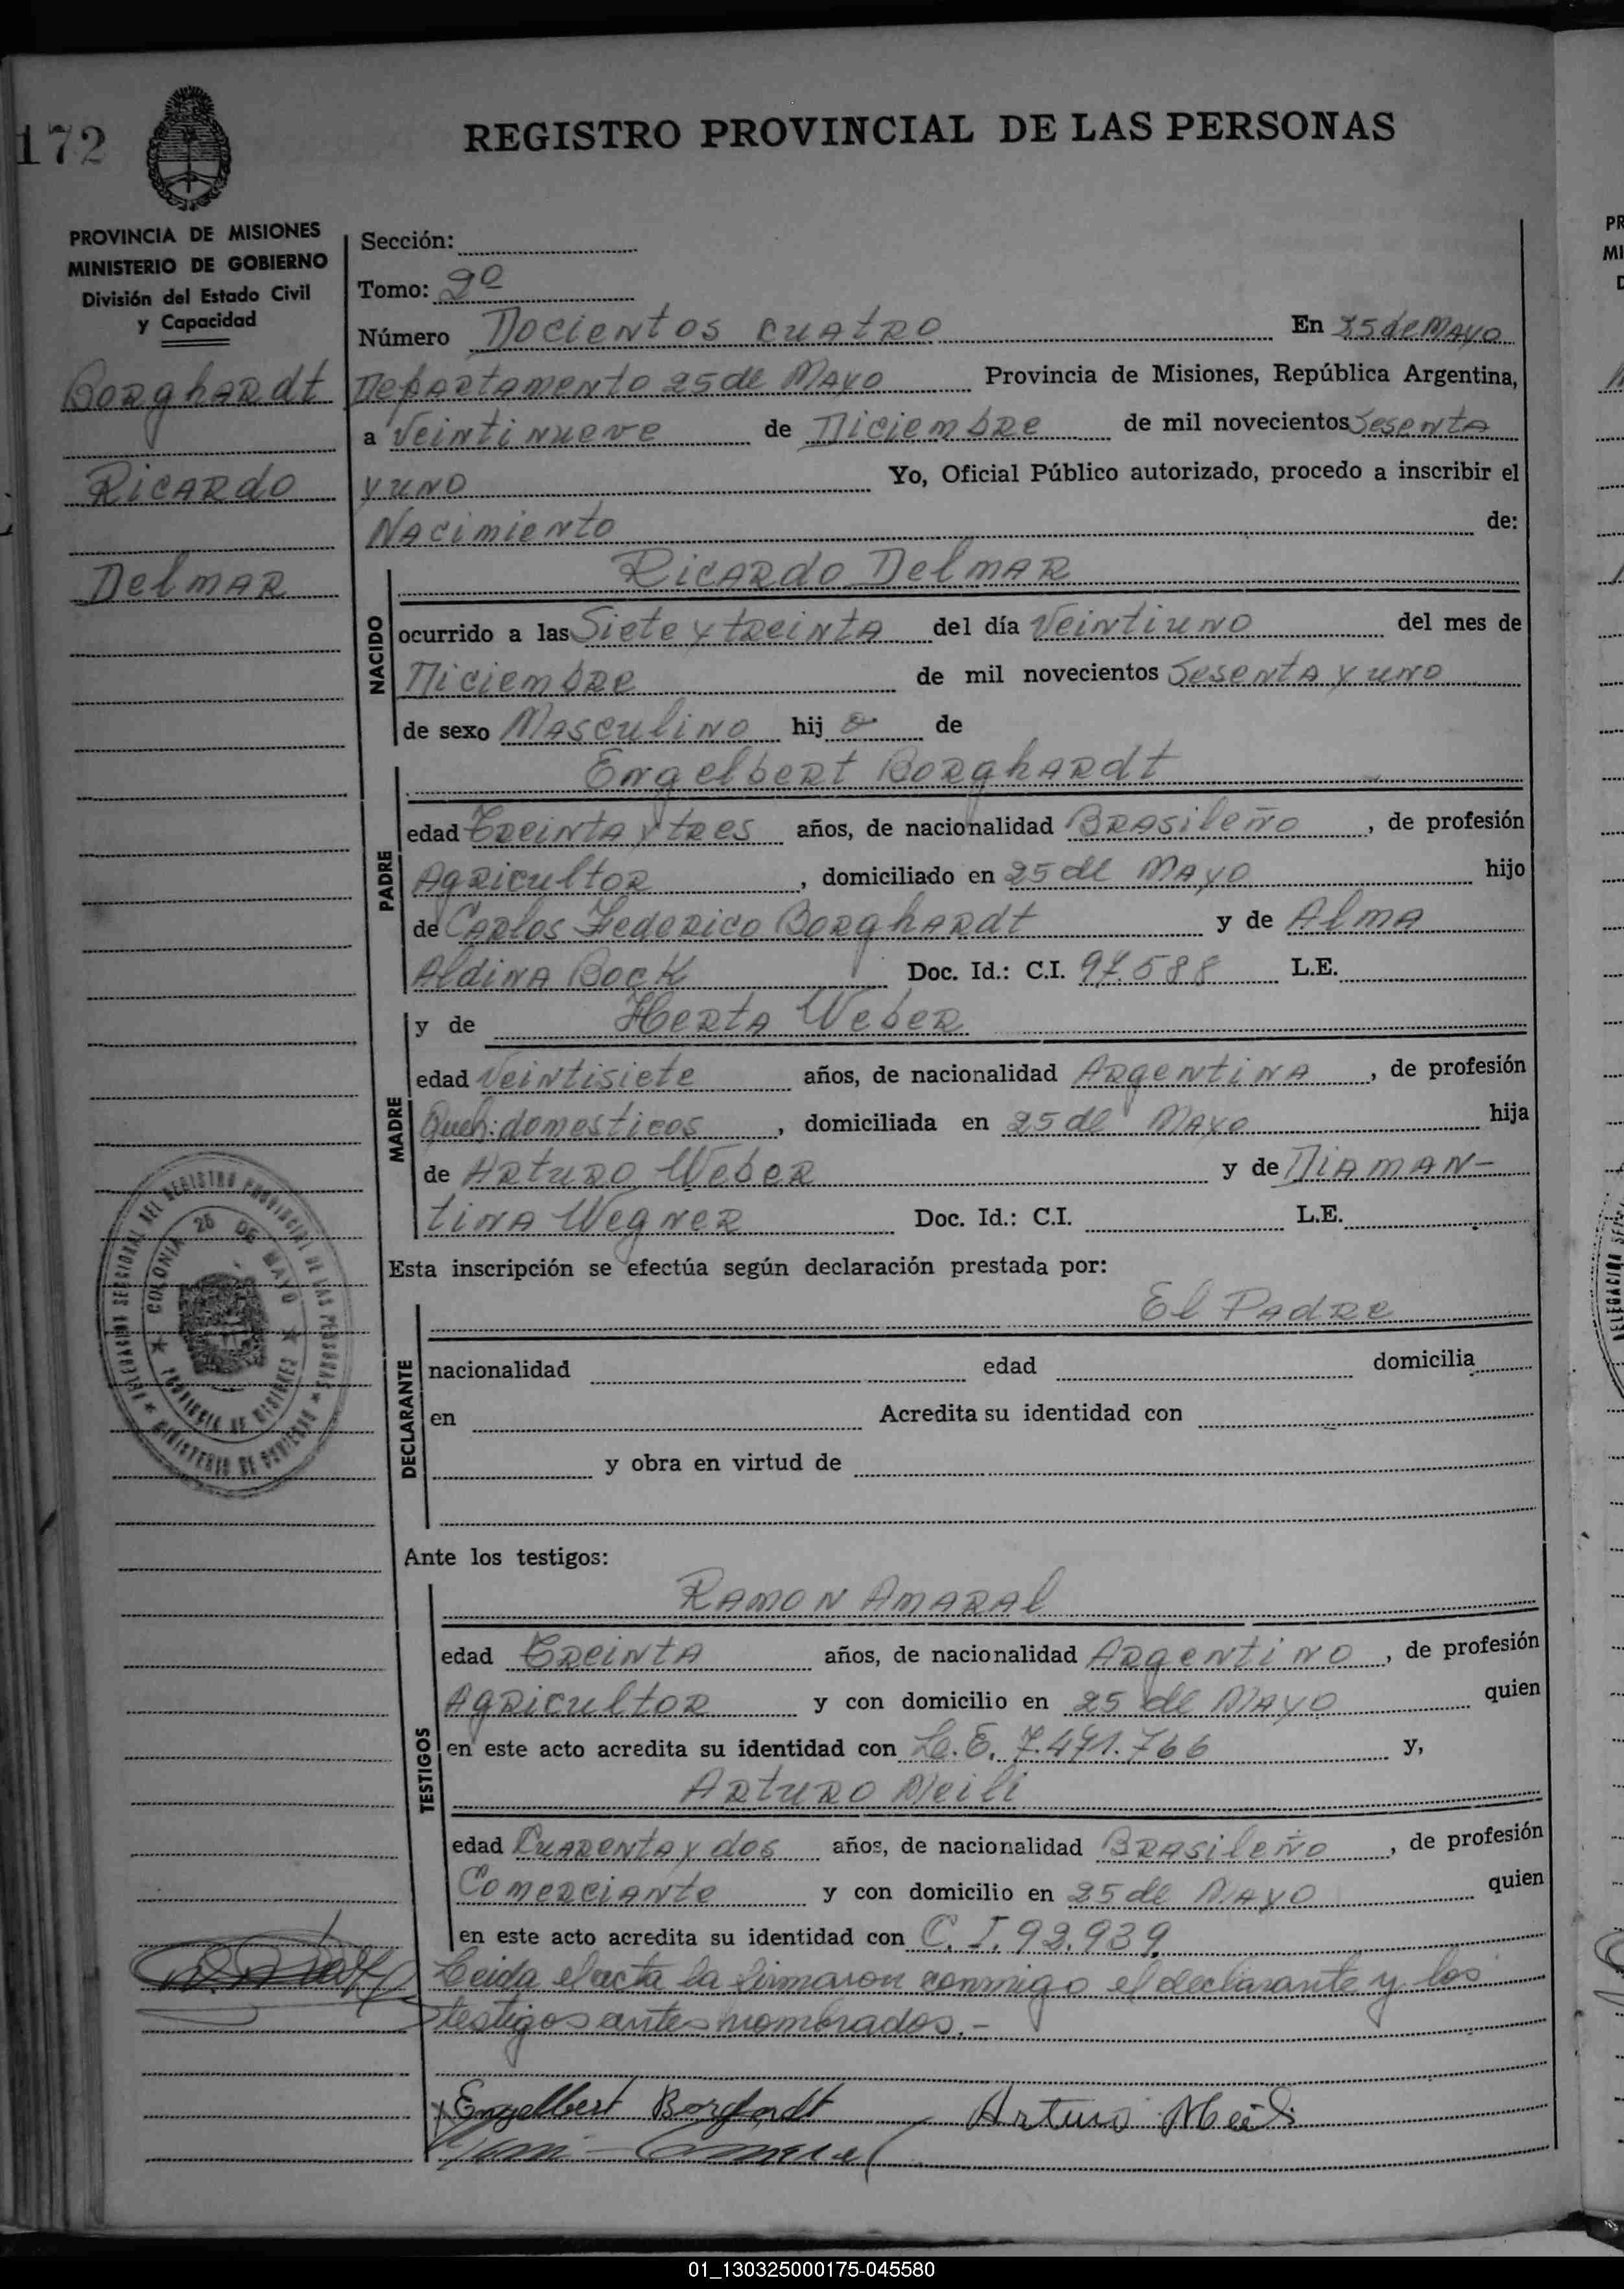 172
REGISTRO PROVINCIAL DE LAS PERSONAS
PROVINCIA DE MISIONES
MINISTERIO DE GOBIERNO
División del Estado Civil
y Capacidad
Borghardt
Ricardo
Delmar
Sección:
Tomo: 2º
Número Docientos cuatro En 25 de Mayo
Departamento 25 de Mayo Provincia de Misiones, República Argentina,
a Veintinueve de Diciembre de mil novecientos Sesenta
y uno Yo, Oficial Público autorizado, procedo a inscribir el
Nacimiento de:
NACIDO
Ricardo Delmar
ocurrido a las Siete y treinta del día Veintiuno del mes de
Diciembre de mil novecientos Sesenta y uno
de sexo Masculino hijo de
PADRE
Engelbert Borghardt
edad Treinta y tres años, de nacionalidad Brasileño, de profesión
Agricultor, domiciliado en 25 de Mayo hijo
de Carlos Federico Borghardt y de Alma
Aldina Bock Doc. Id.: C.I. 97.588 L.E.
MADRE
y de Herta Weber
edad Veintisiete años, de nacionalidad Argentina, de profesión
Queh: domesticos, domiciliada en 25 de Mayo hija
de Arturo Weber y de Diaman-
tina Wegner Doc. Id.: C.I. L.E.
Esta inscripción se efectúa según declaración prestada por:
DECLARANTE
El Padre
nacionalidad edad domicilia
en Acredita su identidad con
y obra en virtud de
Ante los testigos:
TESTIGOS
Ramon Amaral
edad Treinta años, de nacionalidad Argentino, de profesión
Agricultor y con domicilio en 25 de Mayo quien
en este acto acredita su identidad con L.E. 7.471.766 y,
Arturo Meili
edad Cuarenta y dos años, de nacionalidad Brasileño, de profesión
Comerciante y con domicilio en 25 de Mayo quien
en este acto acredita su identidad con C.I. 92.939.
Leida el acta la firmaron conmigo el declarante y los
testigos antes nombrados.-
Engelbert Borghardt Arturo Meili
DELEGACION SECCIONAL DEL REGISTRO PROVINCIAL DE LAS PERSONAS
MINISTERIO DE GOBIERNO
COLONIA 25 DE MAYO
PROVINCIA DE MISIONES
01_130325000175-045580